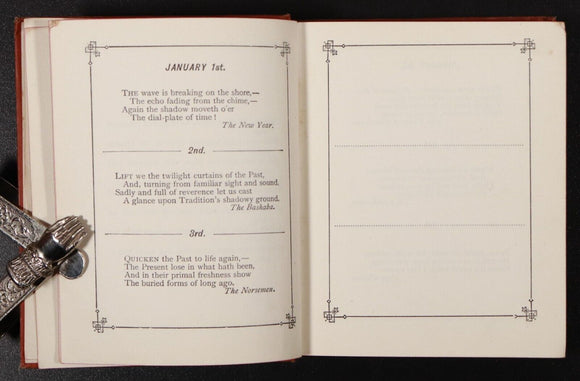 JANUARY 1st.
THE wave is breaking on the shore,—
The echo fading from the chime,—
Again the shadow moveth o'er
The dial-plate of time!
The New Year.
2nd.
LIFT we the twilight curtains of the Past,
And, turning from familiar sight and sound
Sadly and full of reverence let us cast
A glance upon Tradition's shadowy ground.
The Bashaba.
3rd.
QUICKEN the Past to life again,—
The Present lose in what hath been,
And in their primal freshness show
The buried forms of long ago.
The Norsemen.